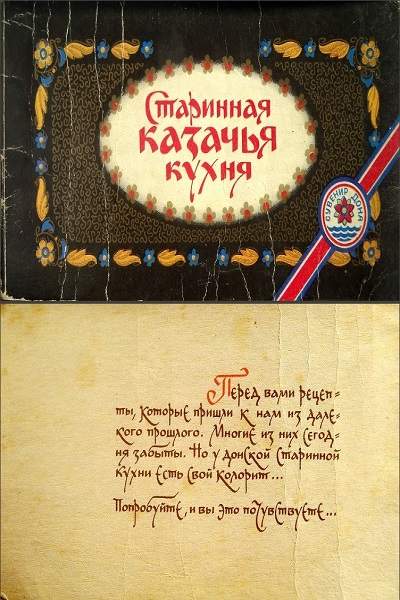 Старинная
казачья
кухня
СУВЕНИР ДОНА
Перед вами рецеп=
ты, которые пришли к нам из дале=
кого прошлого. Многие из них сегод=
ня забыты. Но у донской старинной
кухни есть свой колорит...
Попробуйте, и вы это почувствуете...